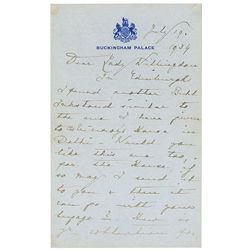 July 19.
BUCKINGHAM PALACE
1934
Dear Lady Willingdon
In Edinburgh
I found another Gold
Inkstand similar to
the one I have given
to Viceroy's House in
Delhi - Would you
like this one too,
for the House, if
so may I send it
to you & then it
can go with your
luggage. Here is